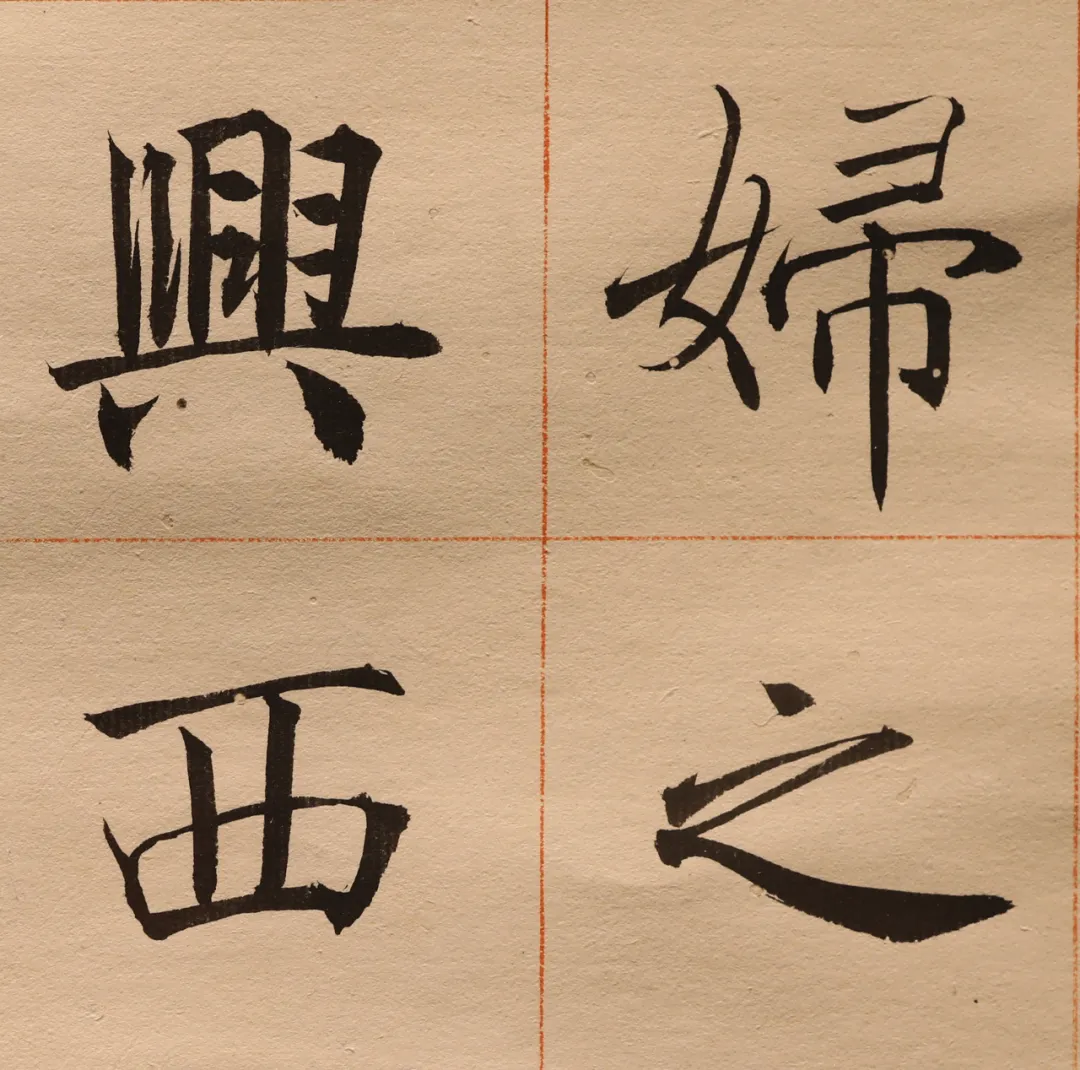 婦之
興西